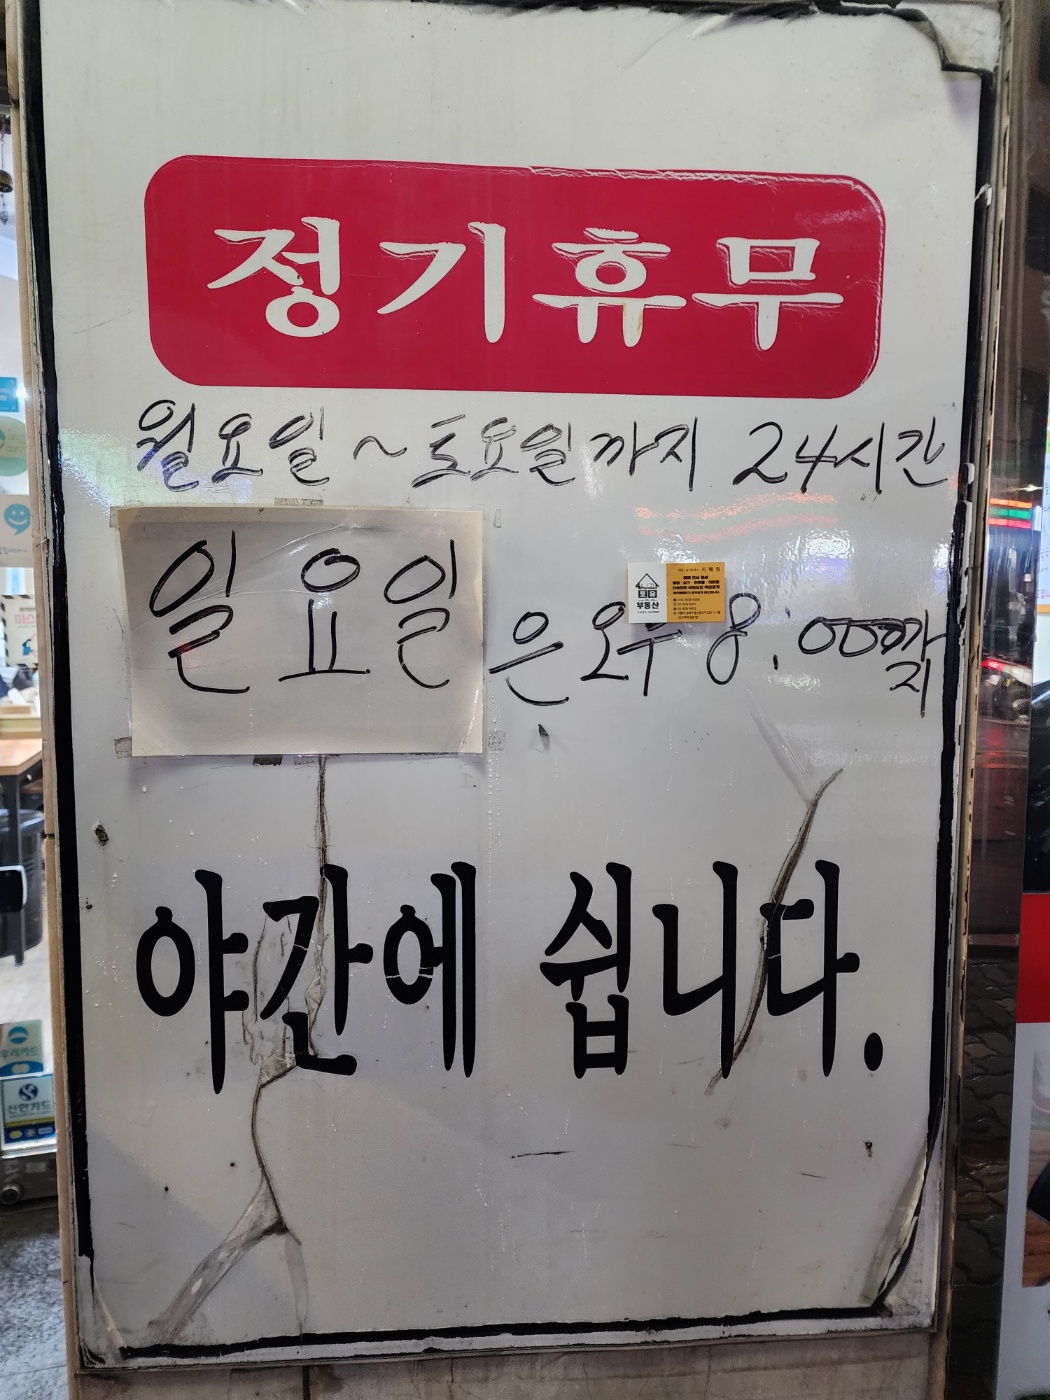 정기휴무
월요일~토요일까지 24시간
일요일은 오후 8:00까지
부동산
야간에 쉽니다.
신한카드